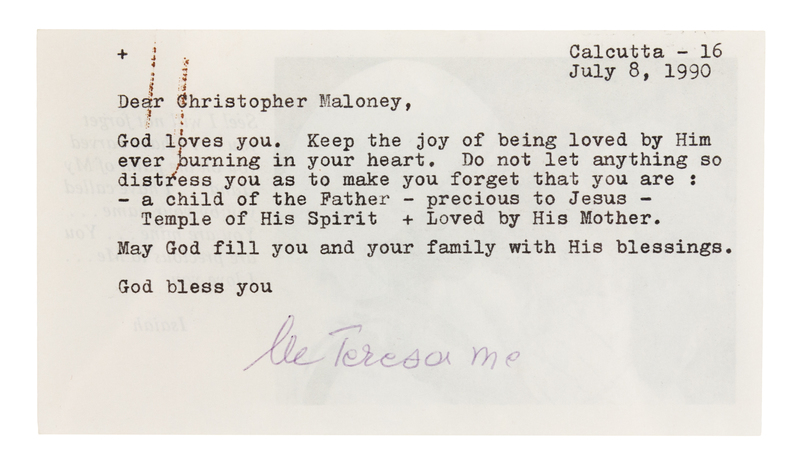 + Calcutta - 16
July 8, 1990
Dear Christopher Maloney,
God loves you.  Keep the joy of being loved by Him
ever burning in your heart.  Do not let anything so
distress you as to make you forget that you are :
- a child of the Father - precious to Jesus -
Temple of His Spirit  + Loved by His Mother.
May God fill you and your family with His blessings.
God bless you
Teresa mc